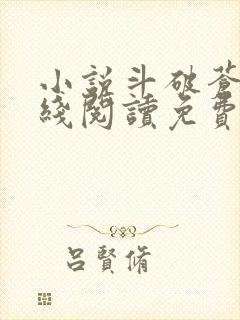 小說斗破蒼
綫閱讀免費
呂賢脩